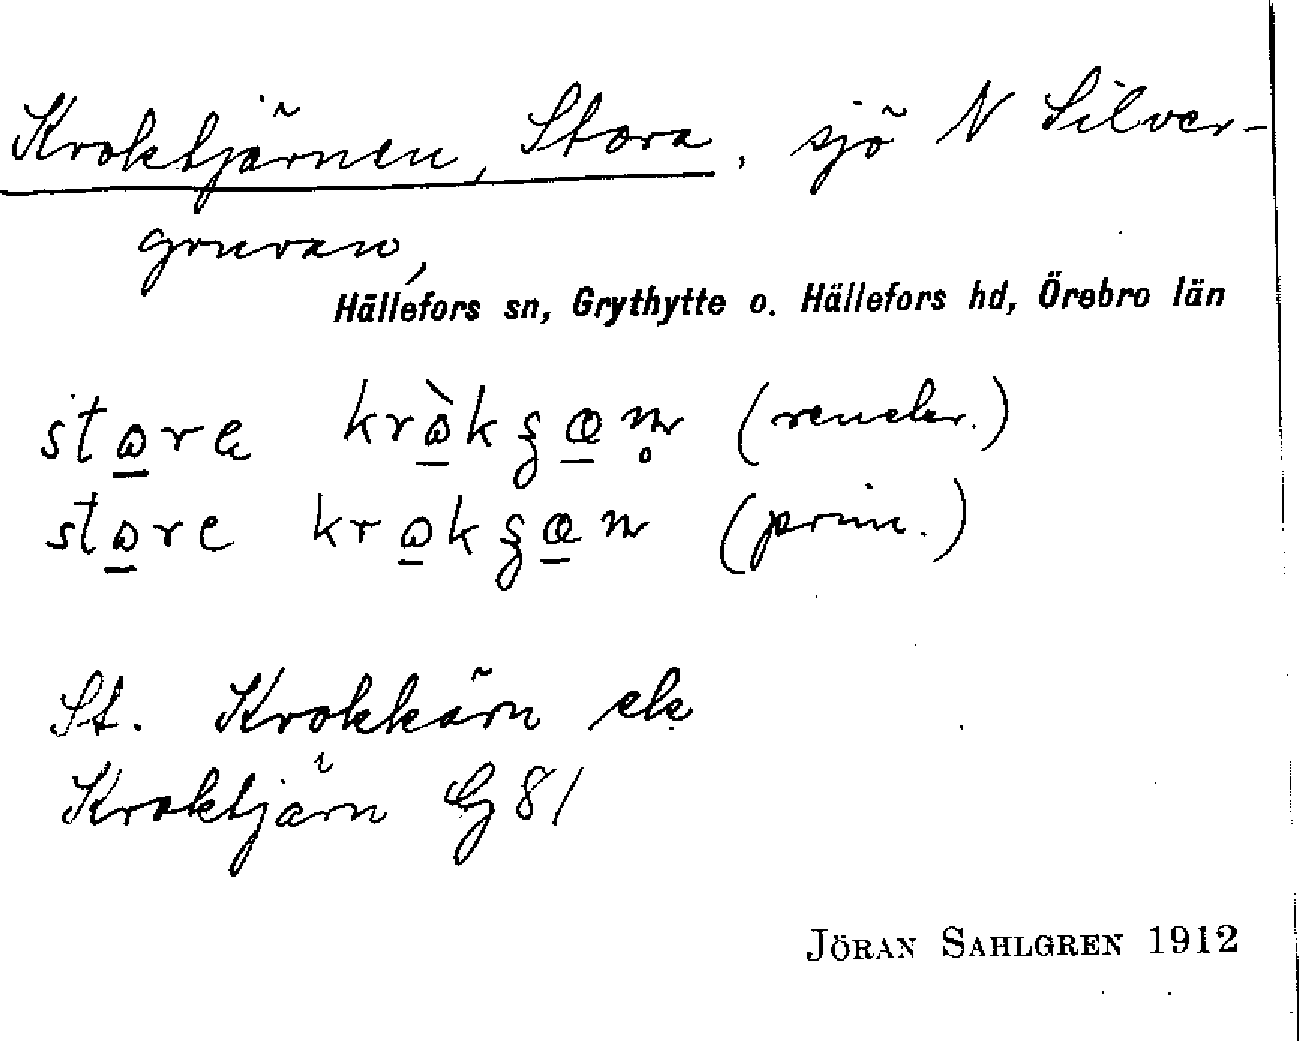 Kroktjärnen, Stora, sjö N Silver-
gruvan,
Hällefors sn, Grythytte o. Hällefors hd, Örebro län
(senclr.)
(prim.)
St. Krokkärn ek
Kroktjärn G 81
JÖRAN SAHLGREN 1912